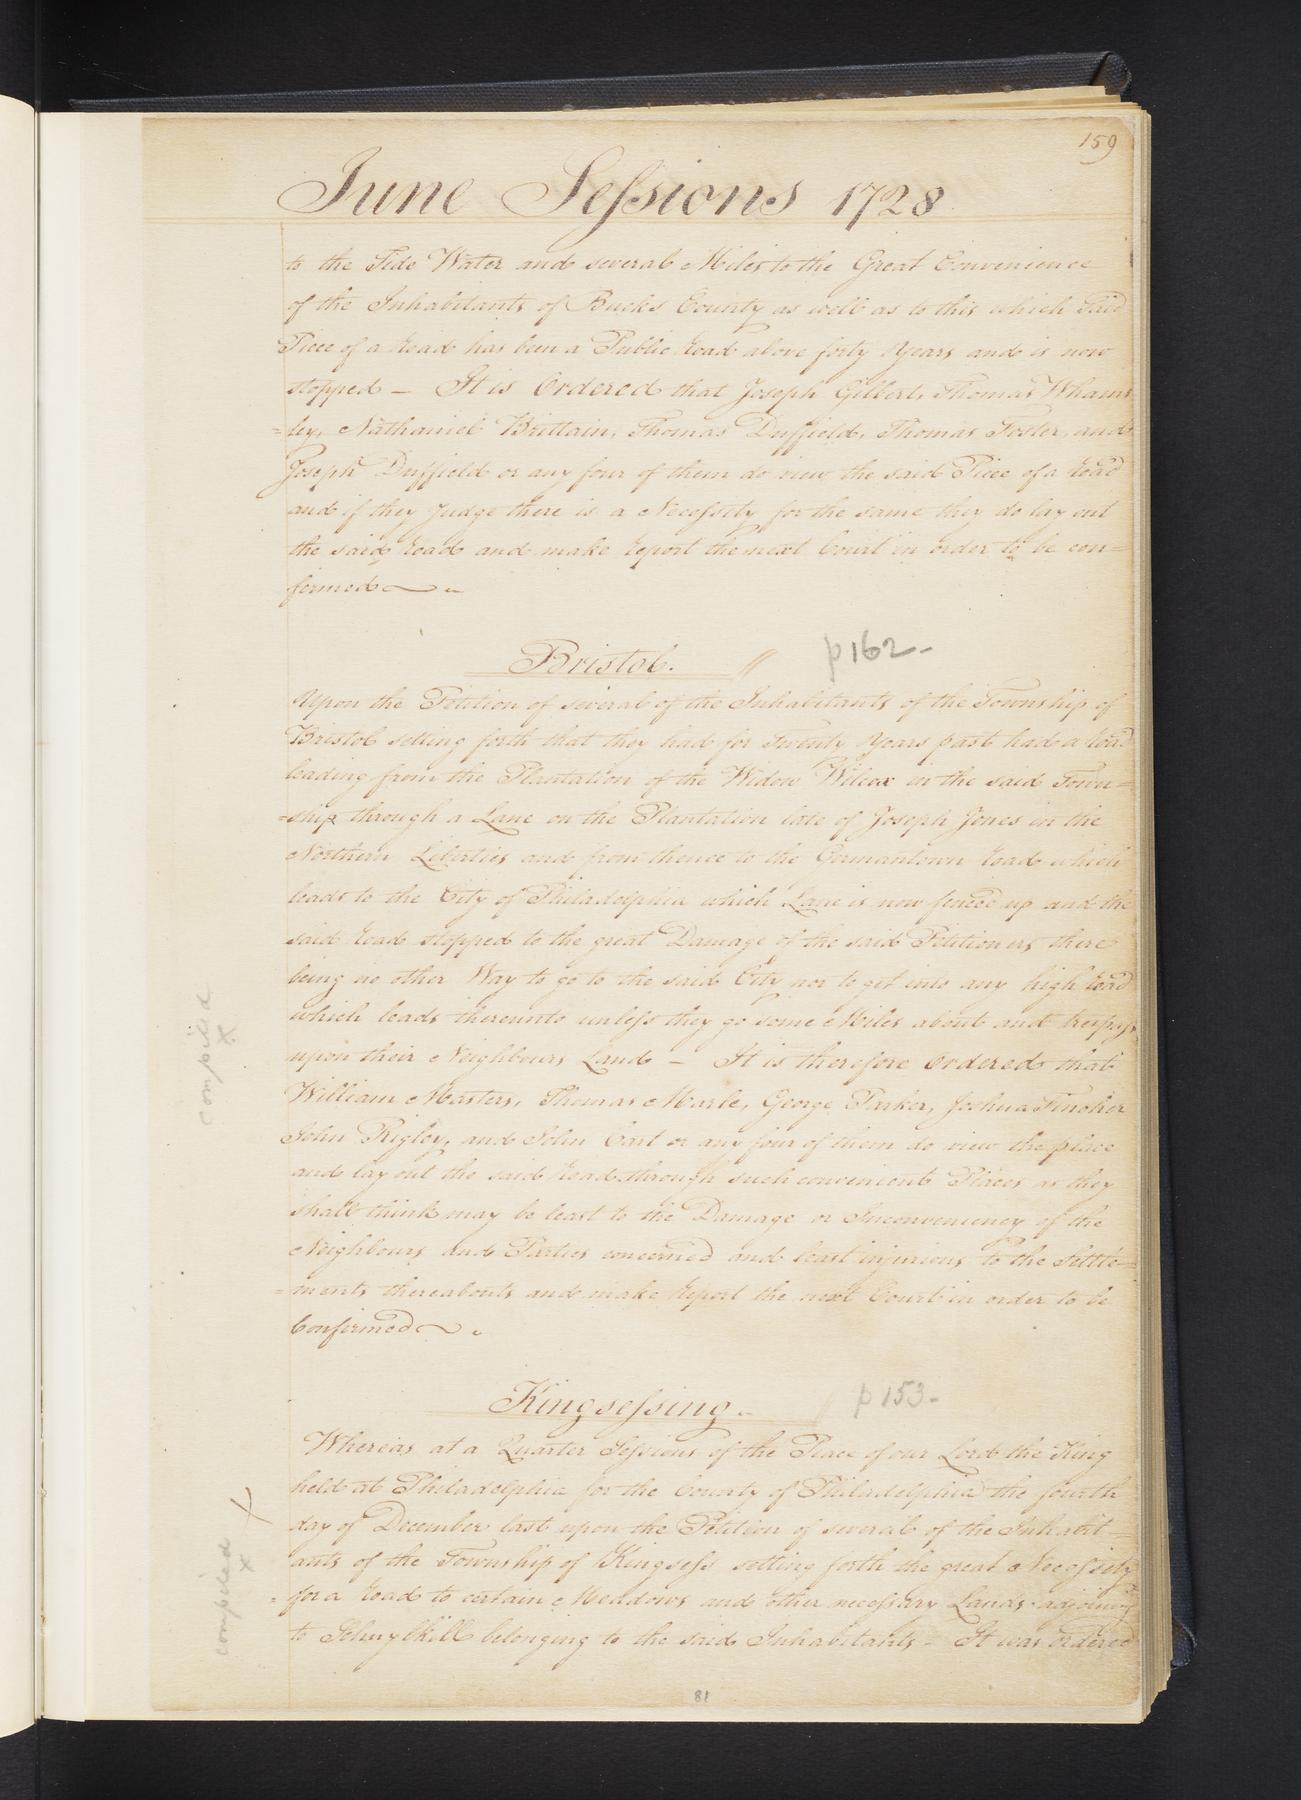 159
June Sessions 1728
to the Tide Water and several Miles to the Great Convenience
of the Inhabitants of Bucks County as well as to this which Said
Piece of a Road has been a Public Road above forty Years and is now
stopped — It is Ordered that Joseph Gilbert, Thomas Whams
=ley, Nathaniel Brittain, Thomas Duffield, Thomas Foster, and
Joseph Duffield or any four of them do view the said Piece of a Road
and if they Judge there is a Necessity for the same they do lay out
the said Road and make Report the next Court in order to be con=
firmed
Bristol. p162-
Upon the Petition of several of the Inhabitants of the Township of
Bristol setting forth that they had for Twenty Years past had a Road
leading from the Plantation of the Widow Wilcox in the said Town=
=ship through a Lane on the Plantation late of Joseph Jones in the
Northern Liberties and from thence to the Germantown Road which
leads to the City of Philadelphia which Lane is now fenced up and the
said Road stopped to the great Damage of the said Petitioners there
being no other Way to go to the said City nor to get into any high Road
which leads thereunto unless they go some Miles about and trespass
upon their Neighbours Land — It is therefore Ordered that
William Masters, Thomas Marle, George Parker, Joshua
John Rigley, and John Cart or any four of them do view the place
and lay out the said Road through such convenient Places as they
shall think may be least to the Damage or Inconveniency of the
Neighbours and Parties concerned and least injurious to the Settle=
=ments thereabouts and make Report the next Court in order to be
Confirmed
compiled
x
Kingsessing. p153-
Whereas at a Quarter Sessions of the Peace of our Lord the King
held at Philadelphia for the County of Philadelphia the fourth
day of December last upon the Petition of several of the Inhabit=
ants of the Township of Kingsess setting forth the great Necessity
=for a Road to certain Meddows and other necessary Lands adjoining
to Schuylkill belonging to the said Inhabitants - It was ordered
compiled
x
x
81